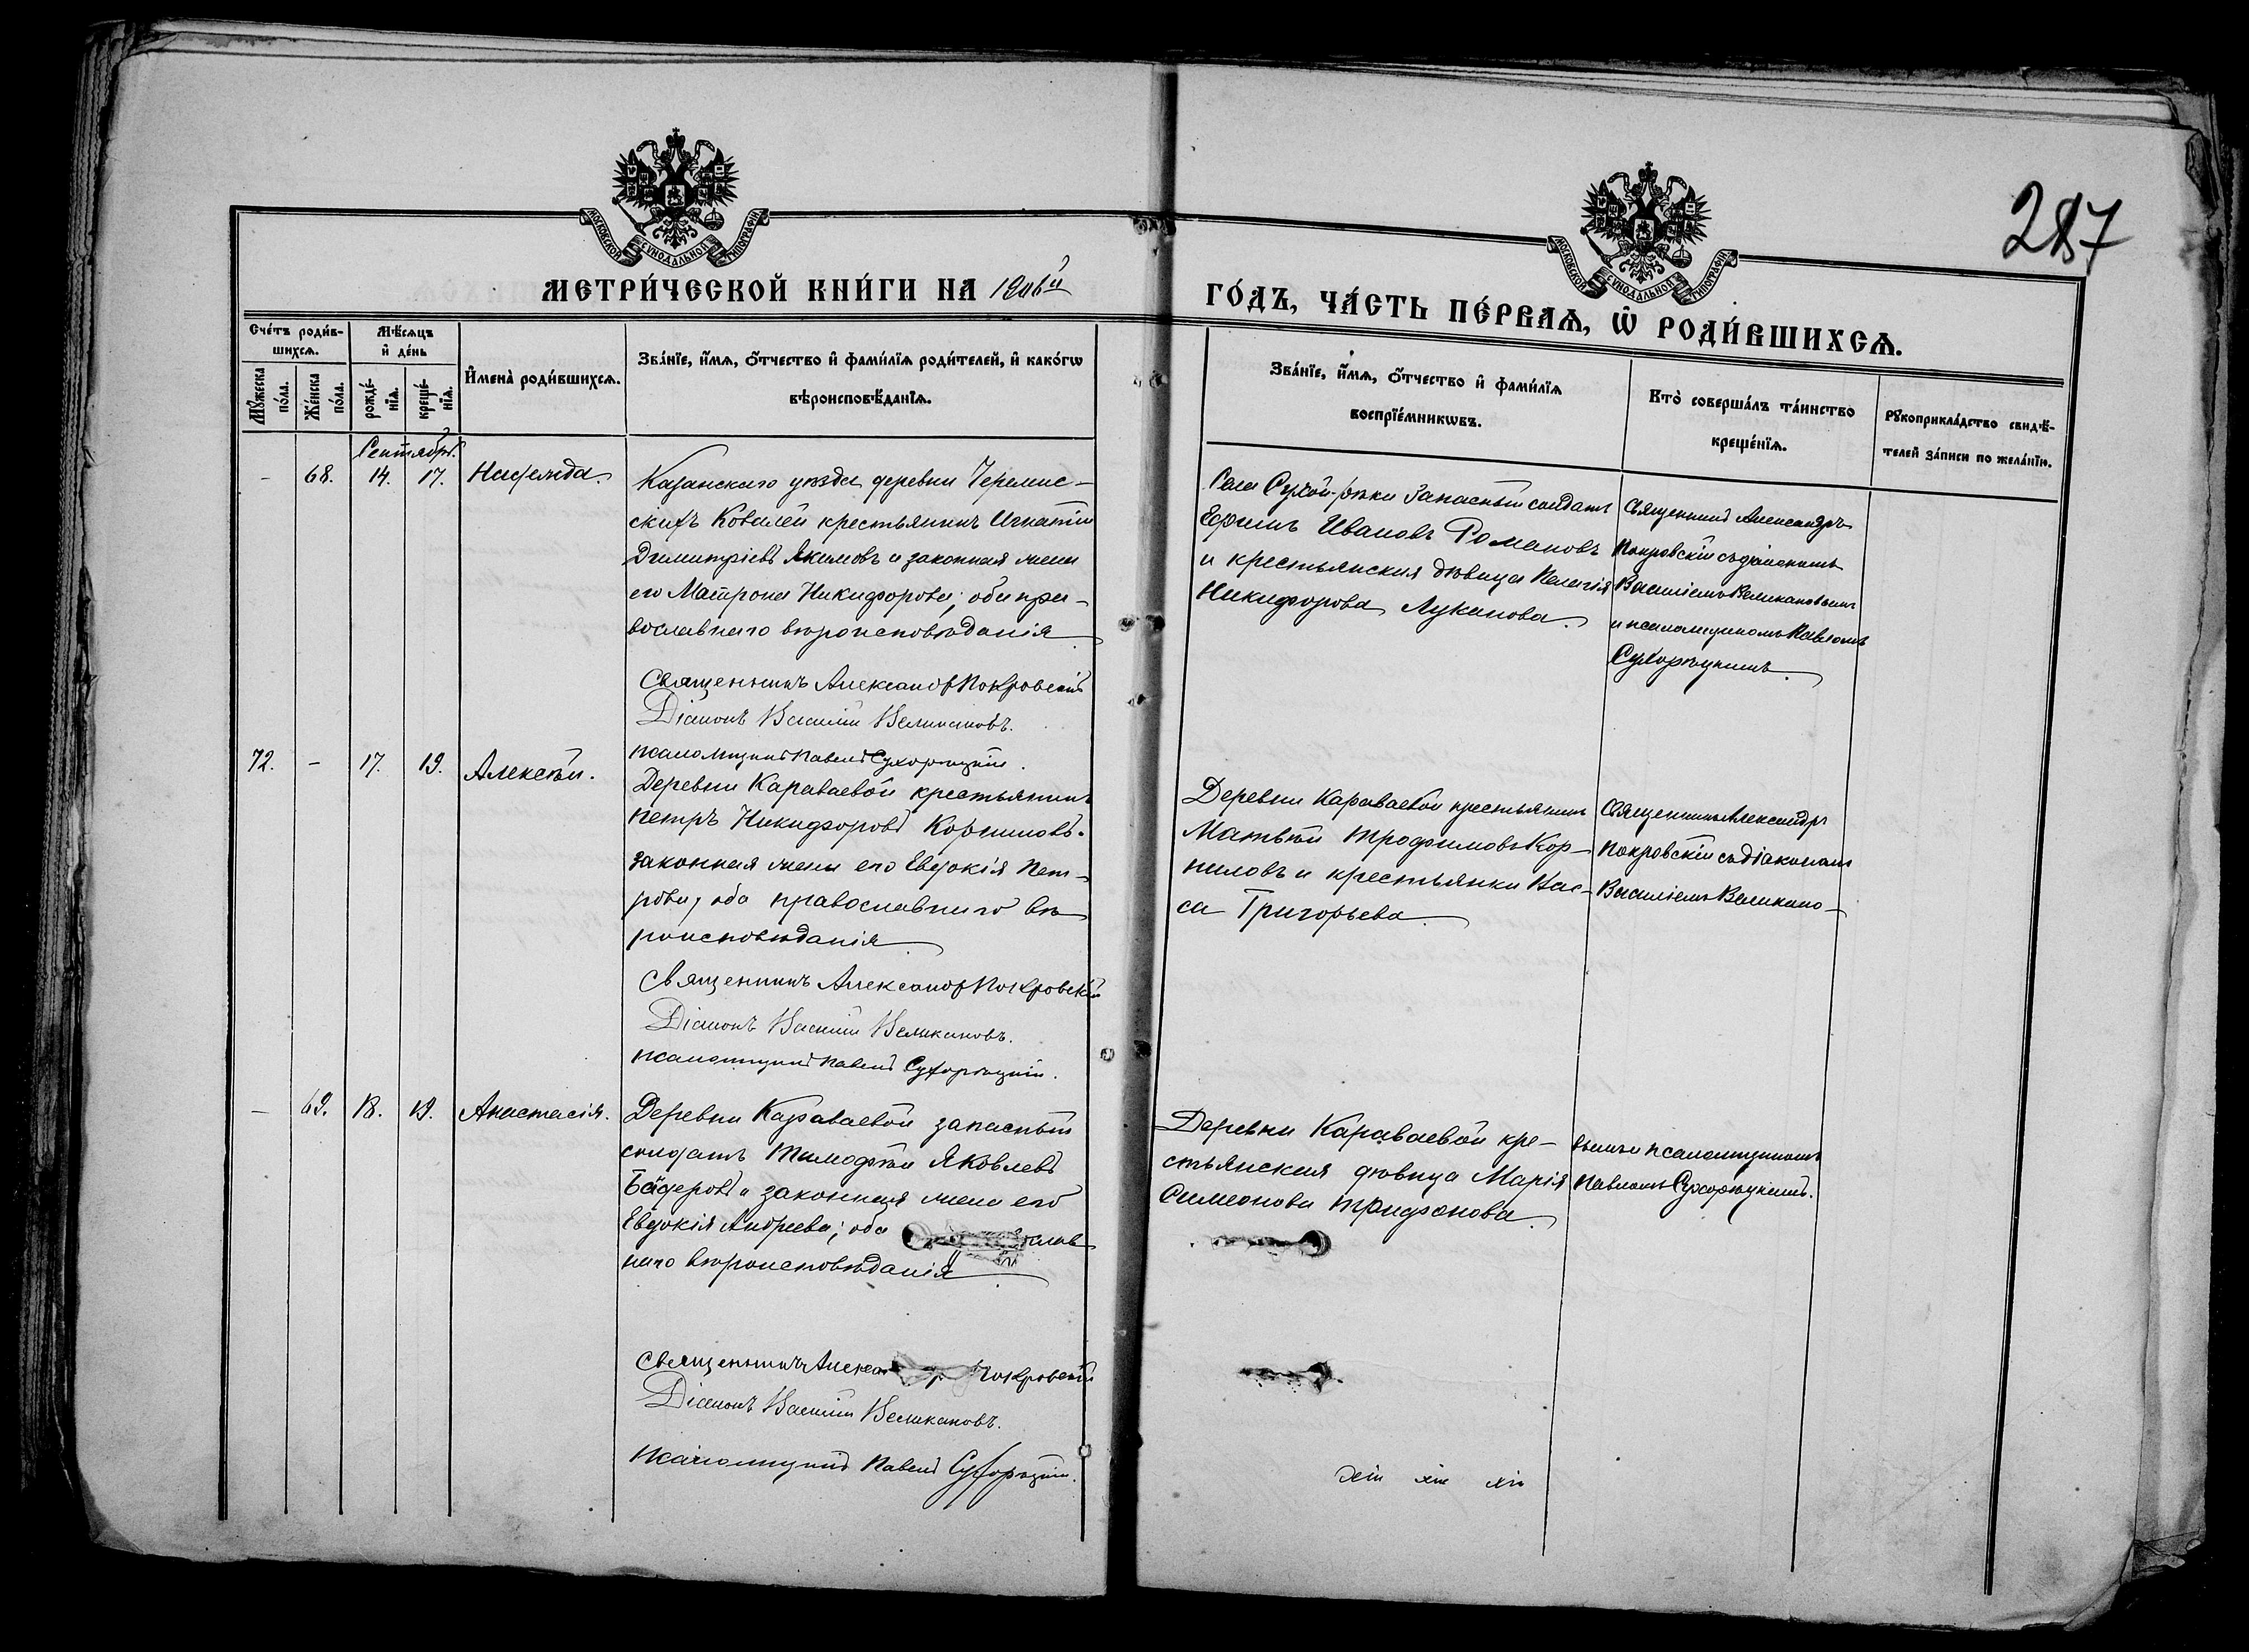 287
МОСКОВСКОЙ СѴНОДАЛЬНОЙ ТИПОГРАФІИ
МОСКОВСКОЙ СѴНОДАЛЬНОЙ ТИПОГРАФІИ
МЕТРИ́ЧЕСКОЙ КНИ́ГИ НА 1906й
ГО́ДЪ, ЧА́СТЬ ПЕ́РВАѦ, Ѡ҆ РОДИ́ВШИХСѦ.
Сче́тъ роди́в-
шихсѧ.
Мѣ́сѧцъ
и҆ де́нь
Мꙋ́жеска
по́ла.
Же́нска
по́ла.
рожде́-
нїѧ.
креще́-
нїѧ.
И҆мена̀ роди́вшихсѧ.
Зва́нїе, и҆́мѧ, ѻ҆́тчество и҆ фами́лїѧ роди́телей, и҆ како́гѡ
вѣроисповѣ́данїѧ.
Зва́нїе, и҆́мѧ, ѻ҆́тчество и҆ фами́лїѧ
воспрїе́мникѡвъ.
Кто̀ соверша́лъ та́инство
креще́нїѧ.
Рꙋкоприкла́дство свидѣ́-
телей за́писи по жела́нїю.
Сентябрь.
- 68. 14. 17. Надежда.
Казанскаго уѣзда деревни Черемис-
скихъ Ковалей крестьянинъ Игнатій
Димитріевъ Якимовъ и законная жена
его Матрона Никифорова; оба пра-
вославнаго вѣроисповѣданія
Священникъ Александръ Покровскій
Діаконъ Василій Великановъ.
псаломщикъ Павелъ Сухорѣцкій.
Села Сухой-рѣки запасный солдатъ
Ефимъ Ивановъ Романовъ
и крестьянская дѣвица Пелагія
Никифорова Луканова.
Священникъ Александръ
Покровскій съ діакономъ
Василіемъ Великановымъ
и псаломщикомъ Павломъ
Сухорѣцкимъ.
72. - 17. 19. Алексѣй.
Деревни Караваевой крестьянинъ
Петръ Никифоровъ Корниловъ.
законная жена его Евдокія Пет-
рова, оба православнаго вѣ-
роисповѣданія
Священникъ Александръ Покровскій
Діаконъ Василій Великановъ.
псаломщикъ Павелъ Сухорѣцкій.
Деревни Караваевой крестьянинъ
Матвѣй Трофимовъ Кор-
ниловъ и крестьянка Вас-
са Григорьева
Священникъ Александръ
Покровскій съ діакономъ
Василіемъ Великано-
- 69. 18. 19. Анастасія.
Деревни Караваевой запасный
солдатъ Тимофѣй Яковлевъ
и законная жена его
Евдокія Андреева; оба
наго вѣроисповѣданія
Священникъ Покровскій
Діаконъ Василій Великановъ.
Псаломщикъ Павелъ Сухорѣцкій.
Деревни Караваевой кре-
стьянская дѣвица Марія
Симеонова Трифонова.
вымъ и псаломщикомъ
Павломъ Сухорѣцкимъ.